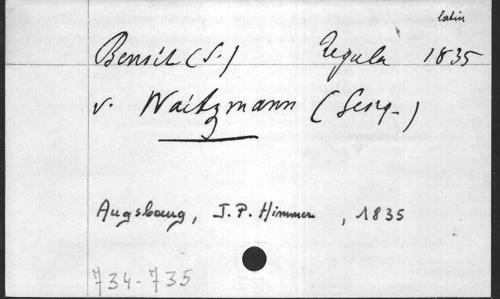 latin
Benoit (S.) Regula 1835
v. Waitzmann (Georg.)
Augsbourg, J. P. Himmer, 1835
734-735